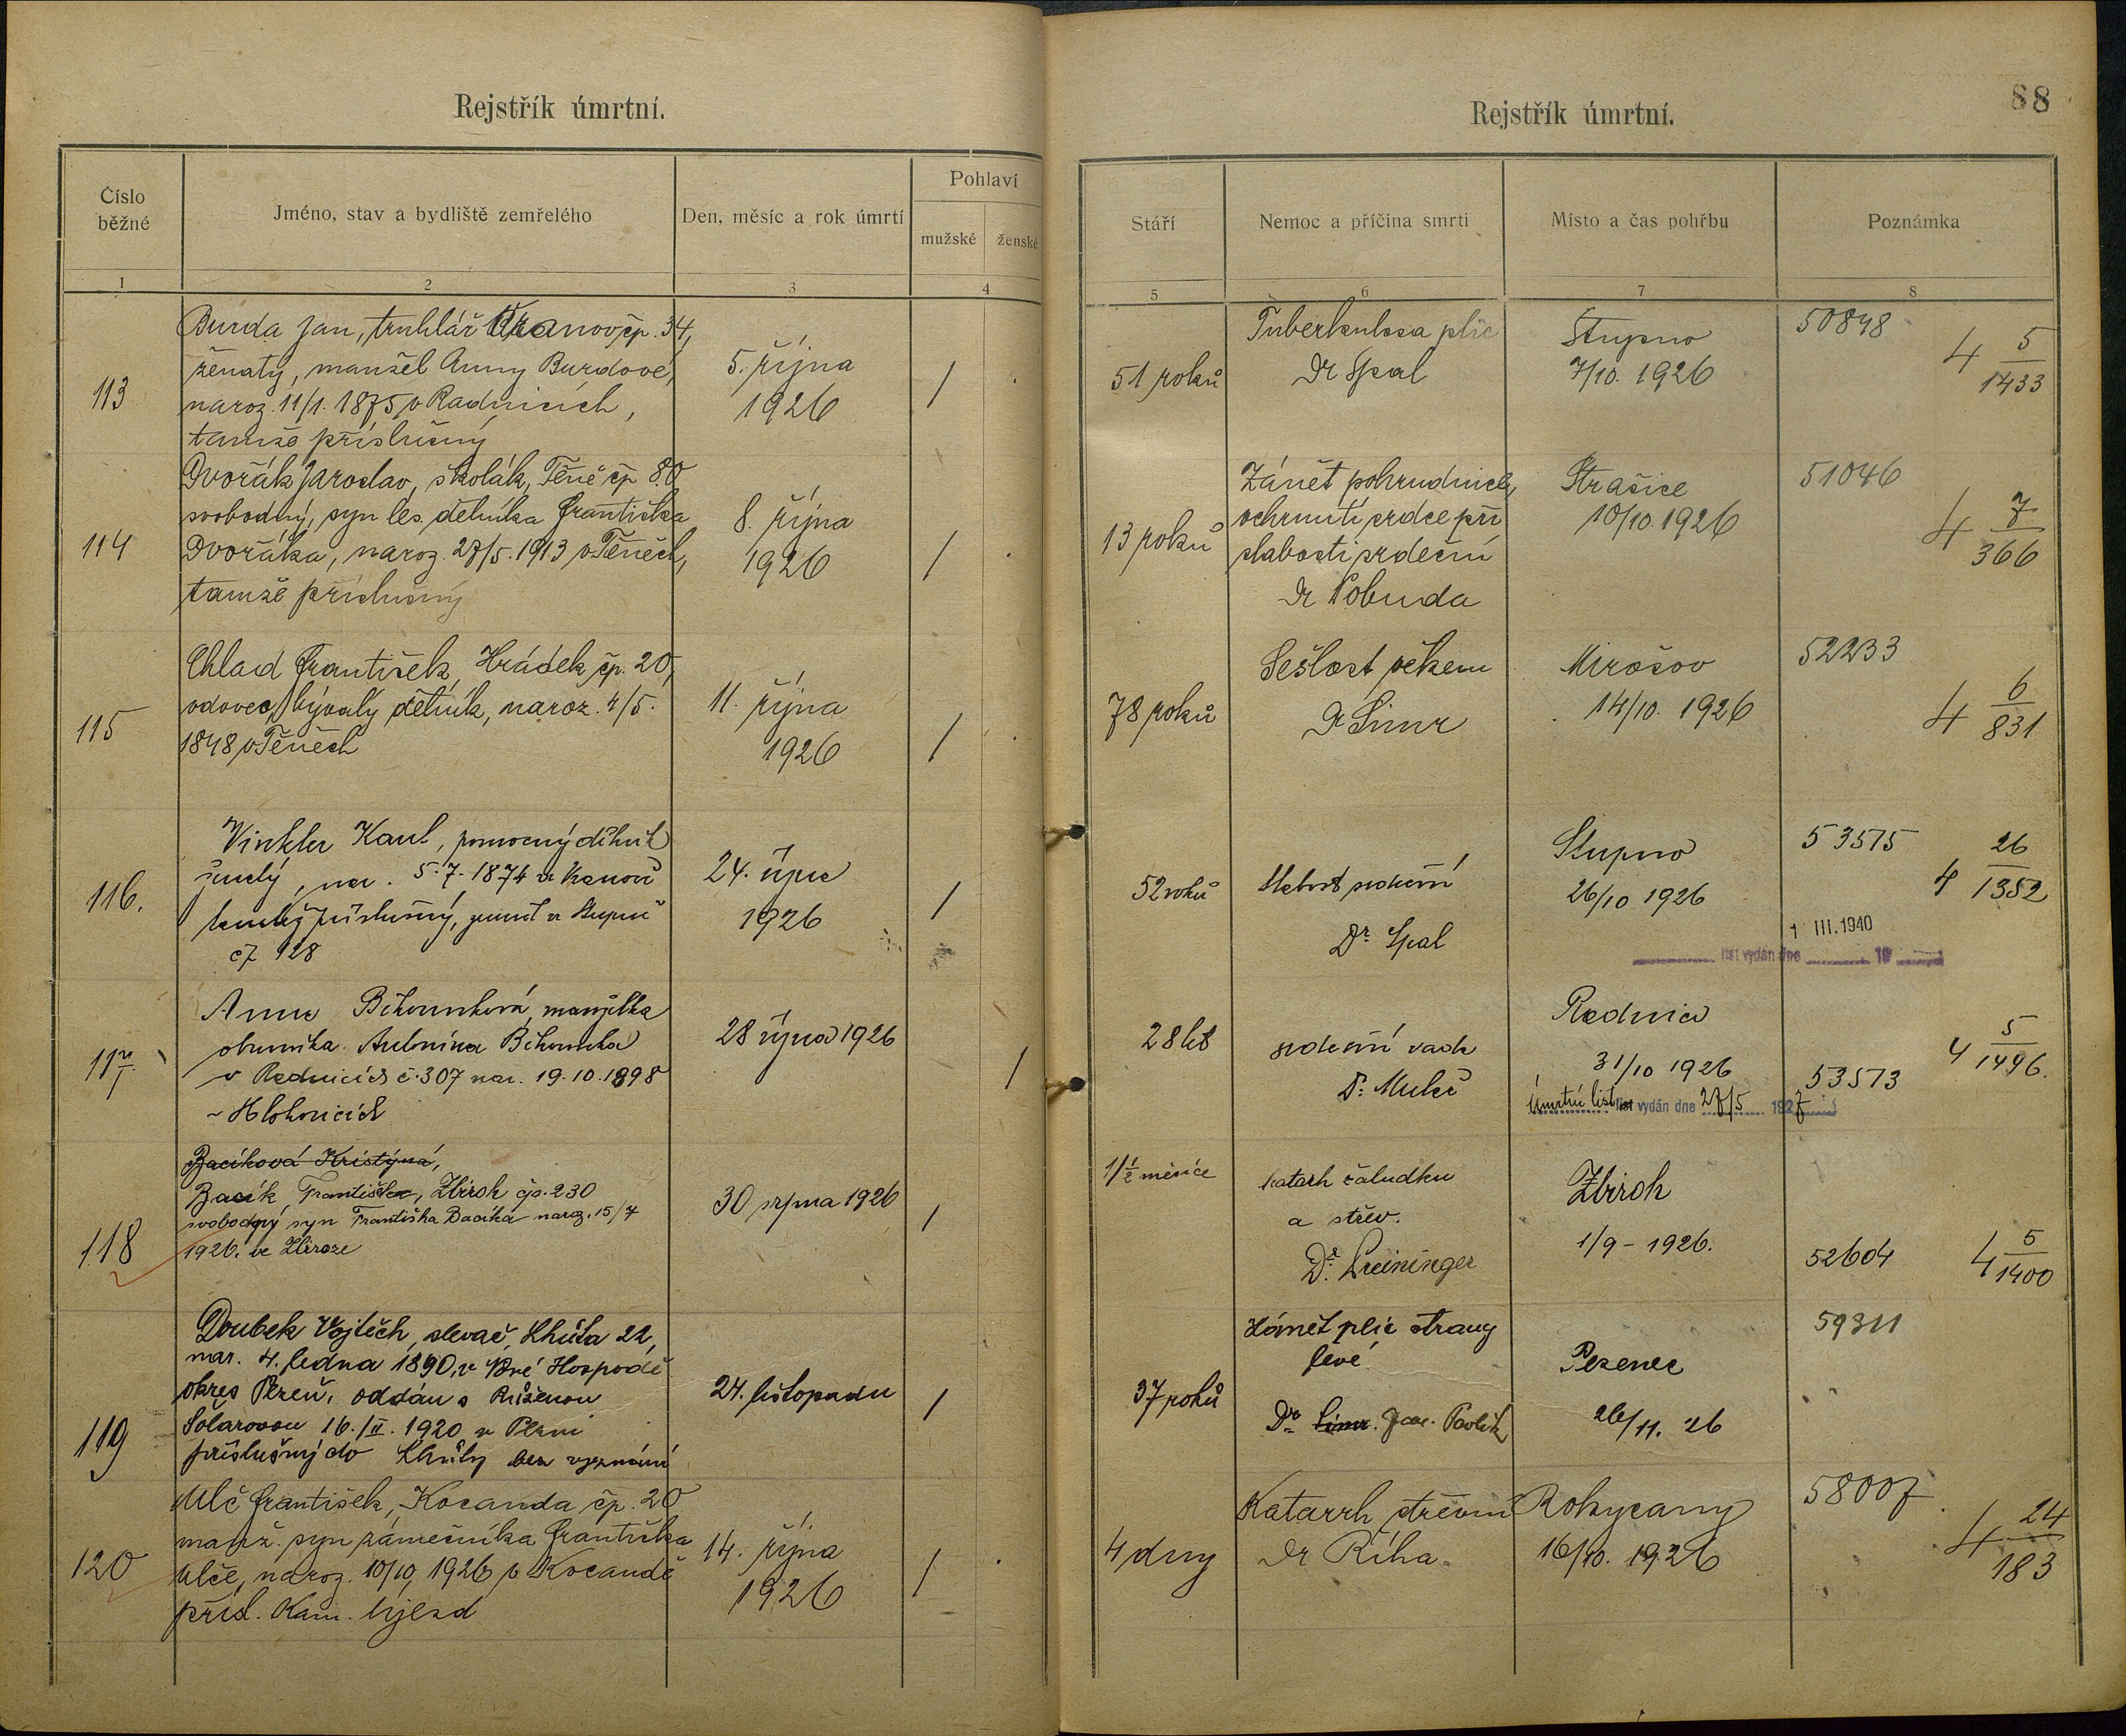 88
Rejstřík úmrtní.
Rejstřík úmrtní.
Číslo běžné
Jméno, stav a bydliště zemřelého
Den, měsíc a rok úmrtí
Pohlaví
mužské
ženské
Stáří
Nemoc a příčina smrti
Místo a čas pohřbu
Poznámka
1
2
3
4
5
6
7
8
113
Burda Jan, truhlář čp. 34,
ženatý, manžel Anny Burdové,
naroz. 11/1. 1875 v Radnicích,
tamže příslušný
5. října
1926
/
51 roků
Tuberkulosa plic
Dr Spal
Stupno
7/10. 1926
50848
4 5/1433
114
Dvořák Jaroslav, školák, Těně čp 80
svobodný, syn les. dělníka Františka
Dvořáka, naroz. 27/5. 1913 v Těněch,
tamže příslušný
8. října
1926
/
13 roků
Zánět pohrudnice,
ochrnutí srdce při
slabosti srdeční
Dr Pobuda
Strašice
10/10. 1926
51046
4 7/366
115
Chlad František, Hrádek čp. 20,
vdovec, bývalý dělník, naroz. 4/5.
1848 v Těněch
11. října
1926
/
78 roků
Sešlost věkem
Dr Simr
Mirošov
14/10. 1926
52233
4 6/831
116.
Vinkler Karel, pomocný dělník
ženatý, nar. 5.7.1874 v
tamtéž příslušný, zemřel v Stupně
čp 128
24. října
1926
/
52 roků
Slabost srdeční
Dr. Spal
Stupno
26/10 1926
53575
4 26/1352
1 III. 1940
list vydán dne 19
117.
Anna Běhounková, manželka
obuvníka Antonína Běhounka
v Radnicích č. 307 nar. 19.10.1898
v Hlohovicích
28 října 1926
/
28 let
srdeční vada
Dr. Mulač
Radnice
31/10 1926
53573
4 5/1496.
Úmrtní list list vydán dne 27/5 1927
118
Bacíková Kristýna,
Bacík František, Zbiroh čp. 230
svobodný syn Františka Bacíka naroz. 15/7
1926. ve Zbiroze
30 srpna 1926
/
1 1/2 měsíce
katarh žaludku
a střev.
Dr. Greininger
Zbiroh
1/9 - 1926.
52604
4 5/1400
119
Doubek Vojtěch, slevač, Lhůta 22,
nar. 4. ledna 1890, v Hospodě
okres Plzeň, oddán s Růženou
Šolarovou 16./II. 1920 v Plzni
příslušný do Lhůty bez vyznání
24. listopadu
/
37 roků
Zánět plic strany
levé
Dr. Simr. Jar. Pavlík
Plzenec
26/11. 26
59311
120
Ulč František, Kocanda čp. 20
manž. syn zámečníka Františka
Ulče, naroz. 10/10, 1926 v Kocandě
přísl. Kam. Újezd
14. října
1926
/
4 dny
Katarrh střevní
Dr Říha
Rokycany
16/10. 1926
58007
4 24/183